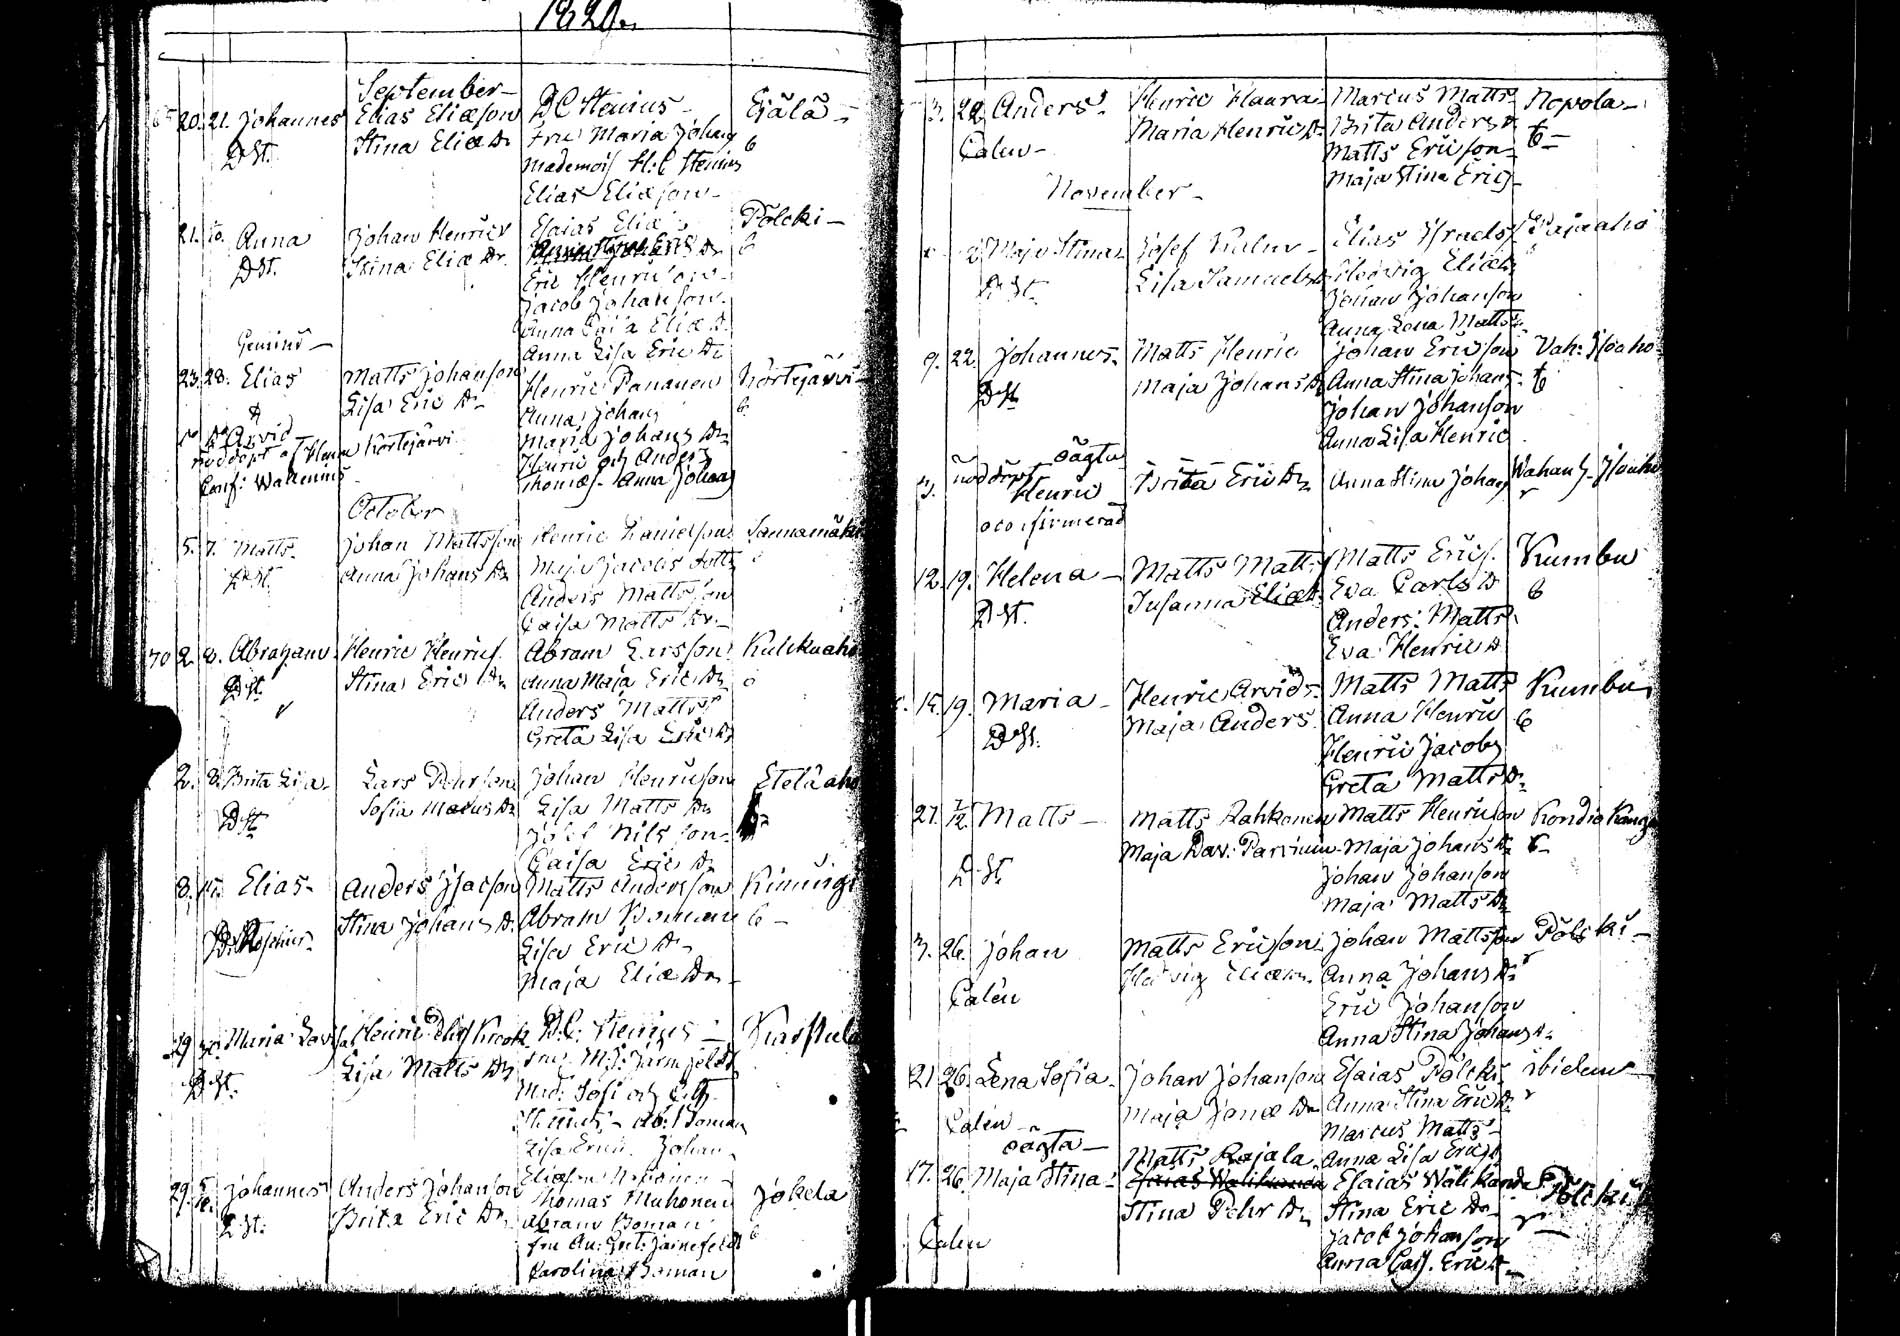 1820.
September
65 20. 21. Johannes Elias Eliæson D C Stenius Ejälä
D. St. Stina Eliæ Dr Fru Maria Johans 6
Mademois H: C Stenius
Elias Eliæson
21. Anna Johan Henrics Esaias Eliæ Pölcki
D St. Stina Eliæ Dr. 6
Eric Henricson
Jacob Johanson
Anna Caisa Eliæ Dr
Anna Lisa Eric Dr
23. 28. Elias Matts Johanson Henric Pananen Kortejärvi
& Lisa Eric Dr Anna Johans 6
Arvid Maria Johans Dr
nöddöpt af Kortejärvi Henric och Anders
Conf: Wallenius Thomæs. Anna Johans
October
5. 7. Matts Johan Mattsson Henric Danielson Sannamäki
D. St. Anna Johans Dr Maja Jacobs Dotter
Anders Mattsson
Caisa Matts Dr
70 2. 8. Abraham Henric Henrics. Abram Larsson Kulckuaho
D St. Stina Eric Dr Anna Maja Eric Dr
Anders Mattss
Greta Lisa Eric Dr
2. 8. Brita Lisa Lars Pehrson Johan Henricson Eteläaho
D. St. Sofia Marcus Dr Lisa Matts Dr
Josef Nilsson
Caisa Eric Dr
8. 15. Elias Anders Isacson Matts Andersson Kimingi
Stina Johans Dr. Abram Boman 6
Lisa Eric Dr
Maja Eliæ Dr
29 Maria Lovisa Henric Krook D. C. Stenius Karstula
D St. Lisa Matts Dr Fru M: J: Järnefeldt
Mad: Sofi och
Stenius Ab: Boman
Lisa Eric Johan
29. Johannes Anders Johanson Thomas Muhonen Jokela
D. St: Brita Eric Dr Abram Boman 6
fru An: Gret: Jarnefeldt
Carolina Boman
3. 22. Anders Henric Haara Marcus Matts Nopola
Calen Maria Henric Dr Brita Anders Dr 6
Matts Ericson
Maja Stina Erics
November
Maja Stina Josef Kalm Elias Israels Pajaaho
D St. Lisa Samuels Dr Hedvig Eliæ Dr
Johan Johanson
Anna Lena Matts
9. 22. Johannes Matts Henric Johan Ericson Vah: Isoaho
D St Maja Johans Dr Anna Stina Johans 6
Johan Johanson
Anna Lisa Henric
oägta
nöddöpt
Henric Brita Eric Dr Anna Stina Johans Wahan J. Isoaho
oconfirmerad
12. 19. Helena Matts Matts Matts Erics. Kumbu
D. St. Susanna Eliæ Dr Eva Carls Dr 6
Anders Matts
Eva Henric Dr
15. 19. Maria Henric Arvids Matts Matts Kumbu
D St. Maja Anders Anna Henric 6
Henric Jacobs
Greta Matts Dr
27. 1/12 Matts Matts Rahkonen Matts Henricson Kondiokangas
D. St. Maja Dav: Parvinin Maja Johans Dr
Johan Johanson
Maja Matts Dr
3. 26. Johan Matts Ericson Johan Mattsson Pölcki
Calén Hedvig Eliæ Dr Anna Johans Dr
Eric Johanson
Anna Stina Johans Dr
21 26. Lena Sofia Johan Johanson Esaias Pölcki ibidem
Calén Maja Jonæ Dr Anna Stina Eric Dr
Marcus Matts
oägta Matts Rajala Anna Lisa Erics
17. 26. Maja Stina Esaias Walikanda Esaias Walikanda Pölcki
Calen Stina Pehr Dr Stina Eric Dr
Jacob Johanson
Anna Cajs. Eric Dr